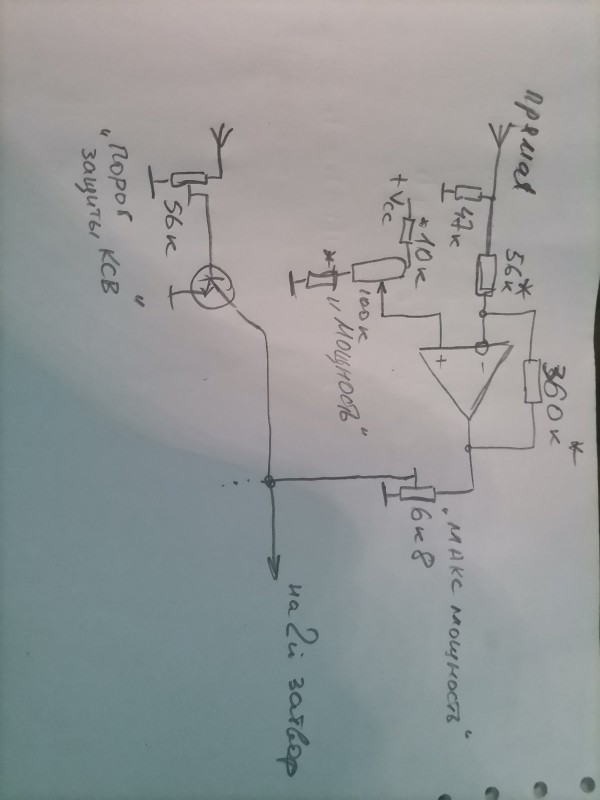 прямая
47к
56к*
+Vcc
*10к
*
100к
"Мощность"
+
-
360к*
56к
"Порог
защиты КСВ"
6к8
"Макс мощность"
на 2й затвор